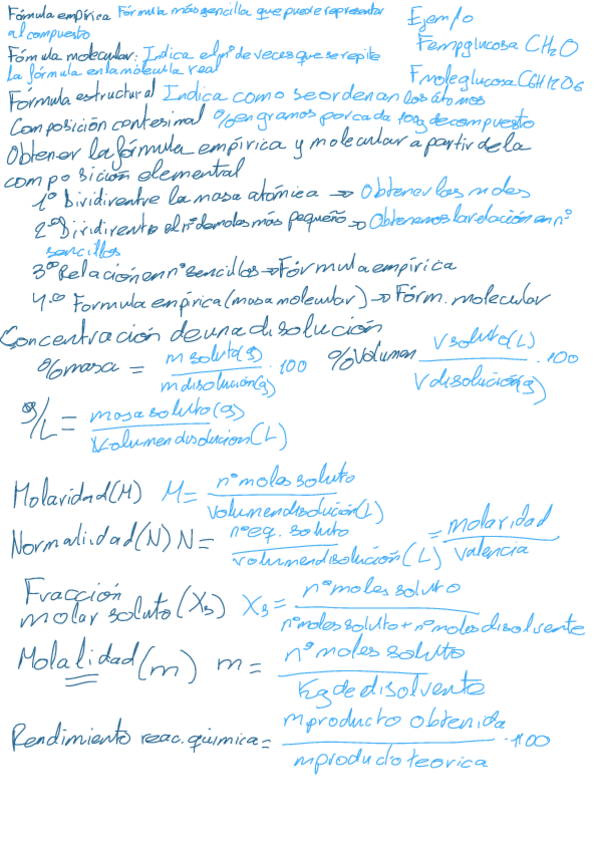 Fórmula empírica Fórmula más sencilla que puede representar
al compuesto
Fómula molecular: Indica el nº de veces que se repite
la fórmula en la molécula real
Ejemplo
Fempglucosa CH2O
Fmoleglucosa C6H12O6
Fórmula estructural Indica como se ordenan los átomos
Composición centesimal % en gramos por cada 100g de compuesto
Obtener la fórmula empírica y molecular a partir de la
composición elemental
1º Dividir entre la masa atómica → Obtener los moles
2º Dividir entre el nº de moles más pequeño → Obtenemos la relación en nº
sencillos
3º Relación en nº sencillos → Fórmula empírica
4º Formula empírica (masa molecular) → Fórm. molecular
Concentración de una disolución
%masa = m soluto(g) / m disolución(g) · 100 %Volumen V soluto(L) / V disolución(g) · 100
g/L = masa soluto (g) / Volumen disolución (L)
Molaridad (M) M = nº moles soluto / volumen disolución (L)
Normalidad (N) N = nº eq. soluto / volumen disolución (L) = molaridad / valencia
Fracción
molar soluto (Xs) Xs = nº moles soluto / nº moles soluto + nº moles disolvente
Molalidad (m) m = nº moles soluto / Kg de disolvente
Rendimiento reac. quimica = m producto obtenida / m producto teorica · 100